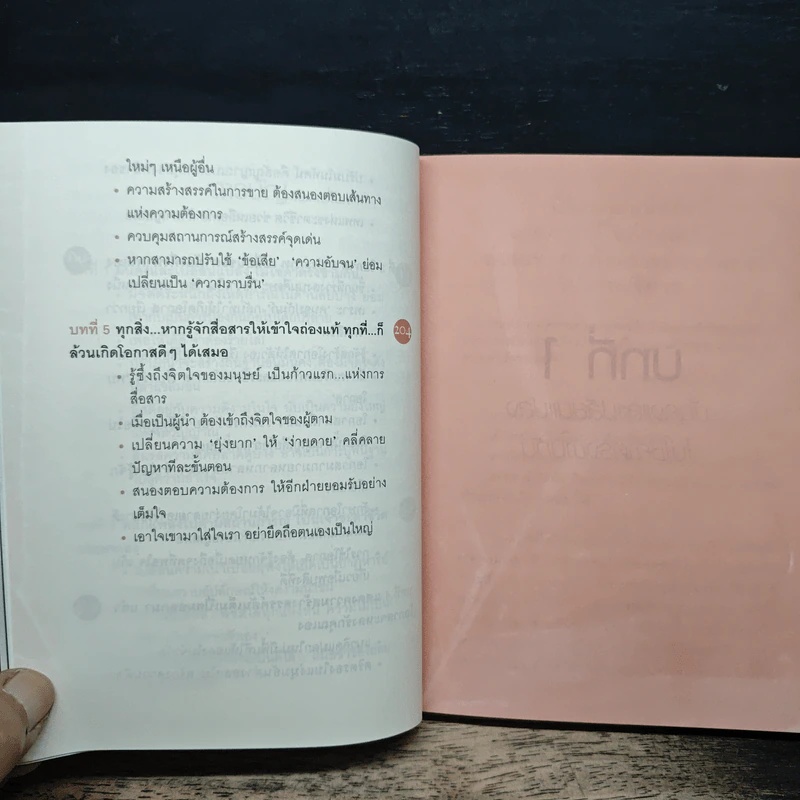 ใหม่ๆ เหนือผู้อื่น
• ความสร้างสรรค์ในการขาย ต้องสนองตอบเส้นทาง
แห่งความต้องการ
• ควบคุมสถานการณ์สร้างสรรค์จุดเด่น
• หากสามารถปรับใช้ ‘ข้อเสีย’ ‘ความอับจน’ ย่อม
เปลี่ยนเป็น ‘ความราบรื่น’
บทที่ 5 ทุกสิ่ง...หากรู้จักสื่อสารให้เข้าใจถ่องแท้ ทุกที่...ก็ 204
ล้วนเกิดโอกาสดีๆ ได้เสมอ
• รู้ซึ้งถึงจิตใจของมนุษย์ เป็นก้าวแรก...แห่งการ
สื่อสาร
• เมื่อเป็นผู้นำ ต้องเข้าถึงจิตใจของผู้ตาม
• เปลี่ยนความ ‘ยุ่งยาก’ ให้ ‘ง่ายดาย’ คลี่คลาย
ปัญหาทีละขั้นตอน
• สนองตอบความต้องการ ให้อีกฝ่ายยอมรับอย่าง
เต็มใจ
• เอาใจเขามาใส่ใจเรา อย่ายึดถือตนเองเป็นใหญ่
บทที่ 1